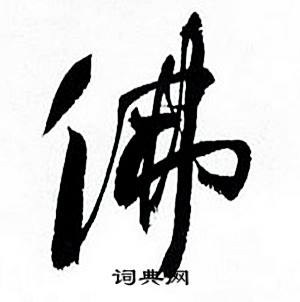 佛
词典网